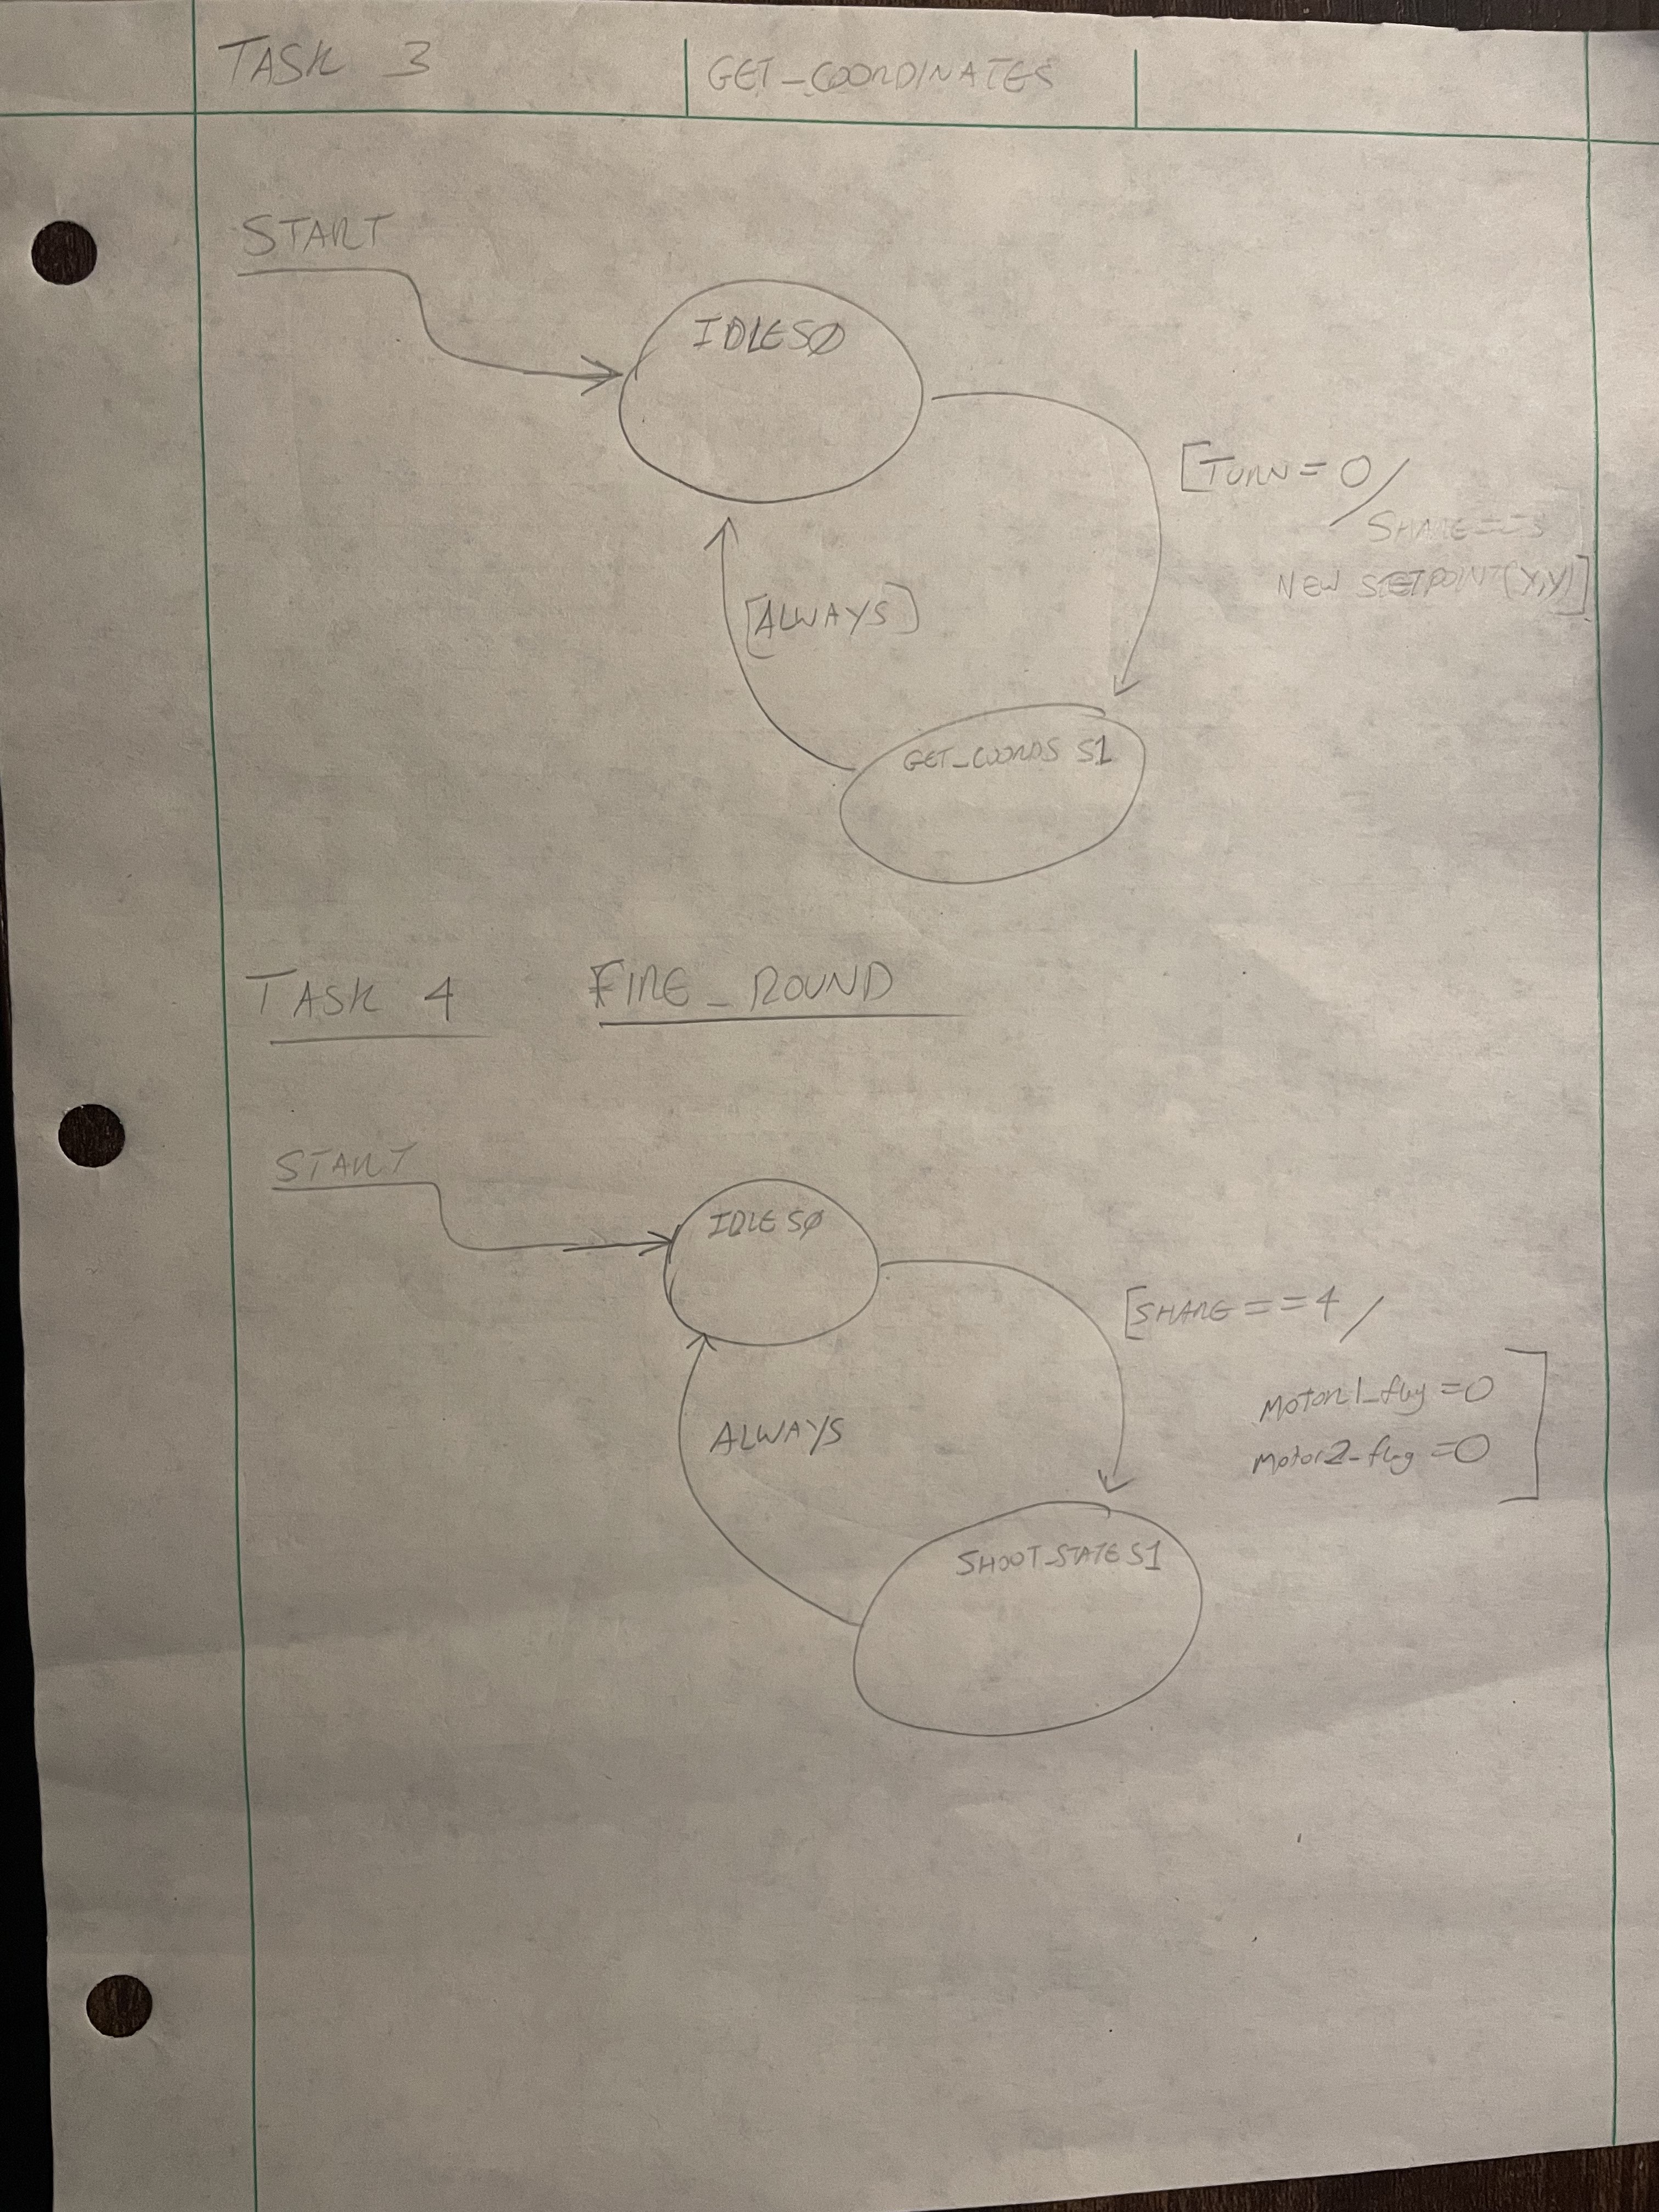 TASK 3 GET_COORDINATES
START
IDLE SØ
[TURN = 0 /
SHARE == 3
NEW SETPOINT(X,Y)]
[ALWAYS]
GET_COORDS S1
TASK 4 FIRE_ROUND
START
IDLE SØ
[SHARE == 4 /
MOTOR1_flag = 0
Motor2_flag = 0
]
ALWAYS
SHOOT_STATE S1